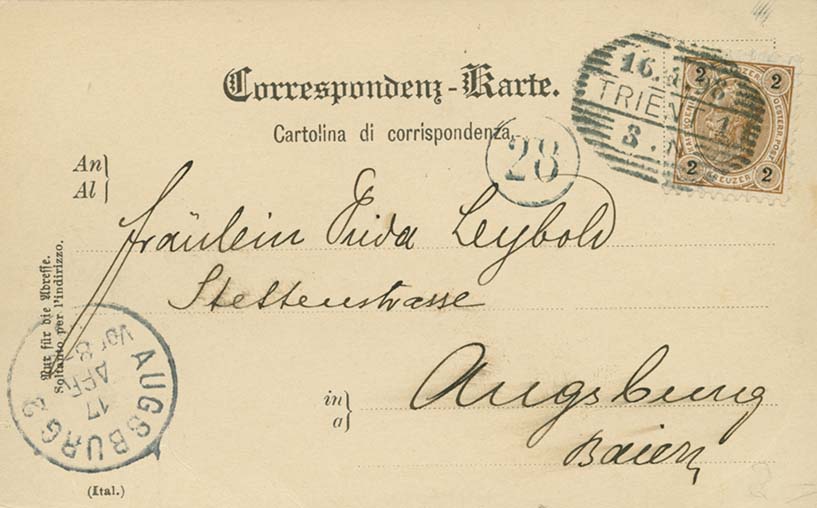 Correspondenz-Karte.
Cartolina di corrispondenza.
16. 98
TRIE 1
8
28
2 2
OESTERR. POST
KREUZER
2 2
An
Al
Fräulein Frida Leybold
Stettenstrasse
in
a
Augsburg
Baiern
Nur für die Adresse.
Soltanto per l'indirizzo.
AUGSBURG 2
17
APR
Vor 8-
(Ital.)